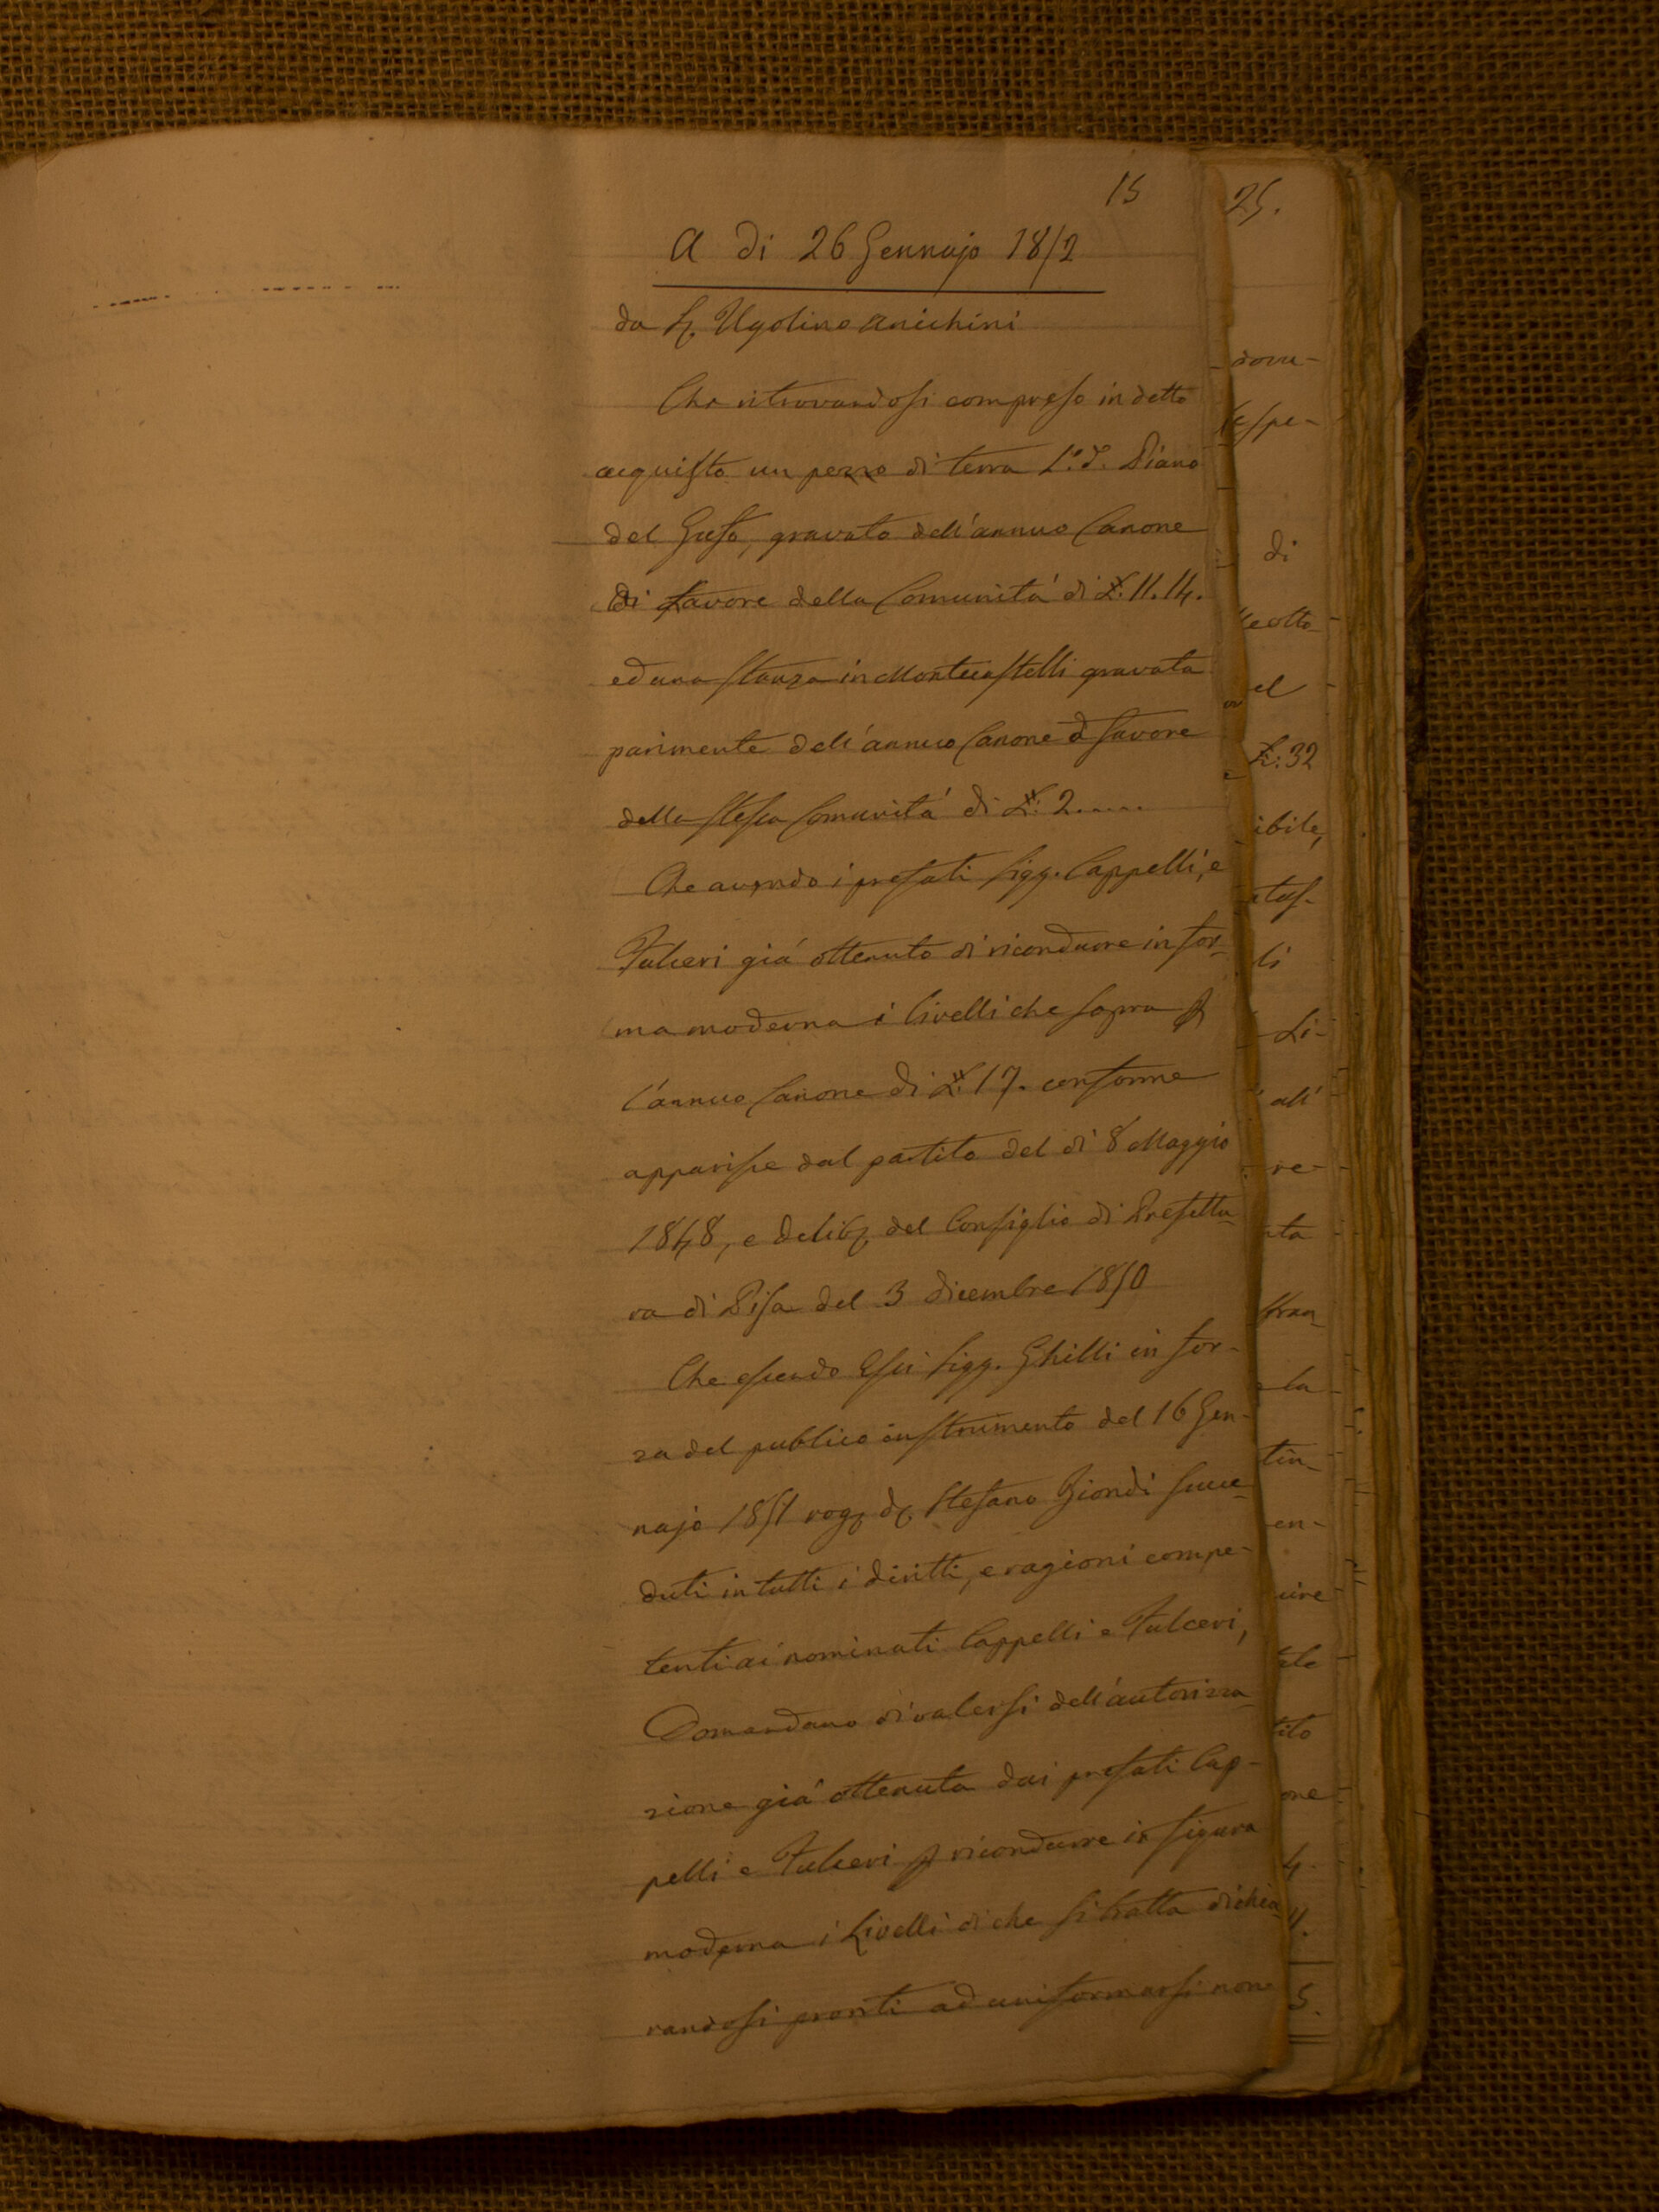 15
A di 26 Gennajo 1852
da S. Ugolino Anichini
Che ritrovandosi compreso in detto
acquisto un pezzo di terra L.o d.o Piano
del Gesso, gravato dell'annuo Canone
di favore della Comunità di £: 11. 14.
ed una stanza in Montecastelli gravata
parimente dell'annuo Canone a favore
della stessa Comunità di £: 2.....
Che avendo i prefati Sigg. Cappelli, e
Fulceri già ottenuto di ricondurre in for-
ma moderna i livelli che sopra p
l'annuo Canone di £: 17. conforme
apparisce dal partito del dì 8 Maggio
1848, e delib. del Consiglio di Prefettu-
ra di Pisa del 3 dicembre 1850
Che essendo Essi Sigg. Ghilli in for-
za del publico instrumento del 16 Gen-
najo 1851 rog. d. Stefano Biondi succe-
duti in tutti i diritti, e ragioni compe-
tenti ai nominati Cappelli e Fulceri,
Domandano di valersi dell'autorizza-
zione già ottenuta dai prefati Cap-
pelli e Fulceri p ricondurre in figura
moderna i Livelli di che si tratta dichia-
randosi pronti ad uniformarsi non
25.
dovu-
di
el
£: 32
ibile,
li
Li-
all'
re-
la
tin-
en-
one
4.
5.